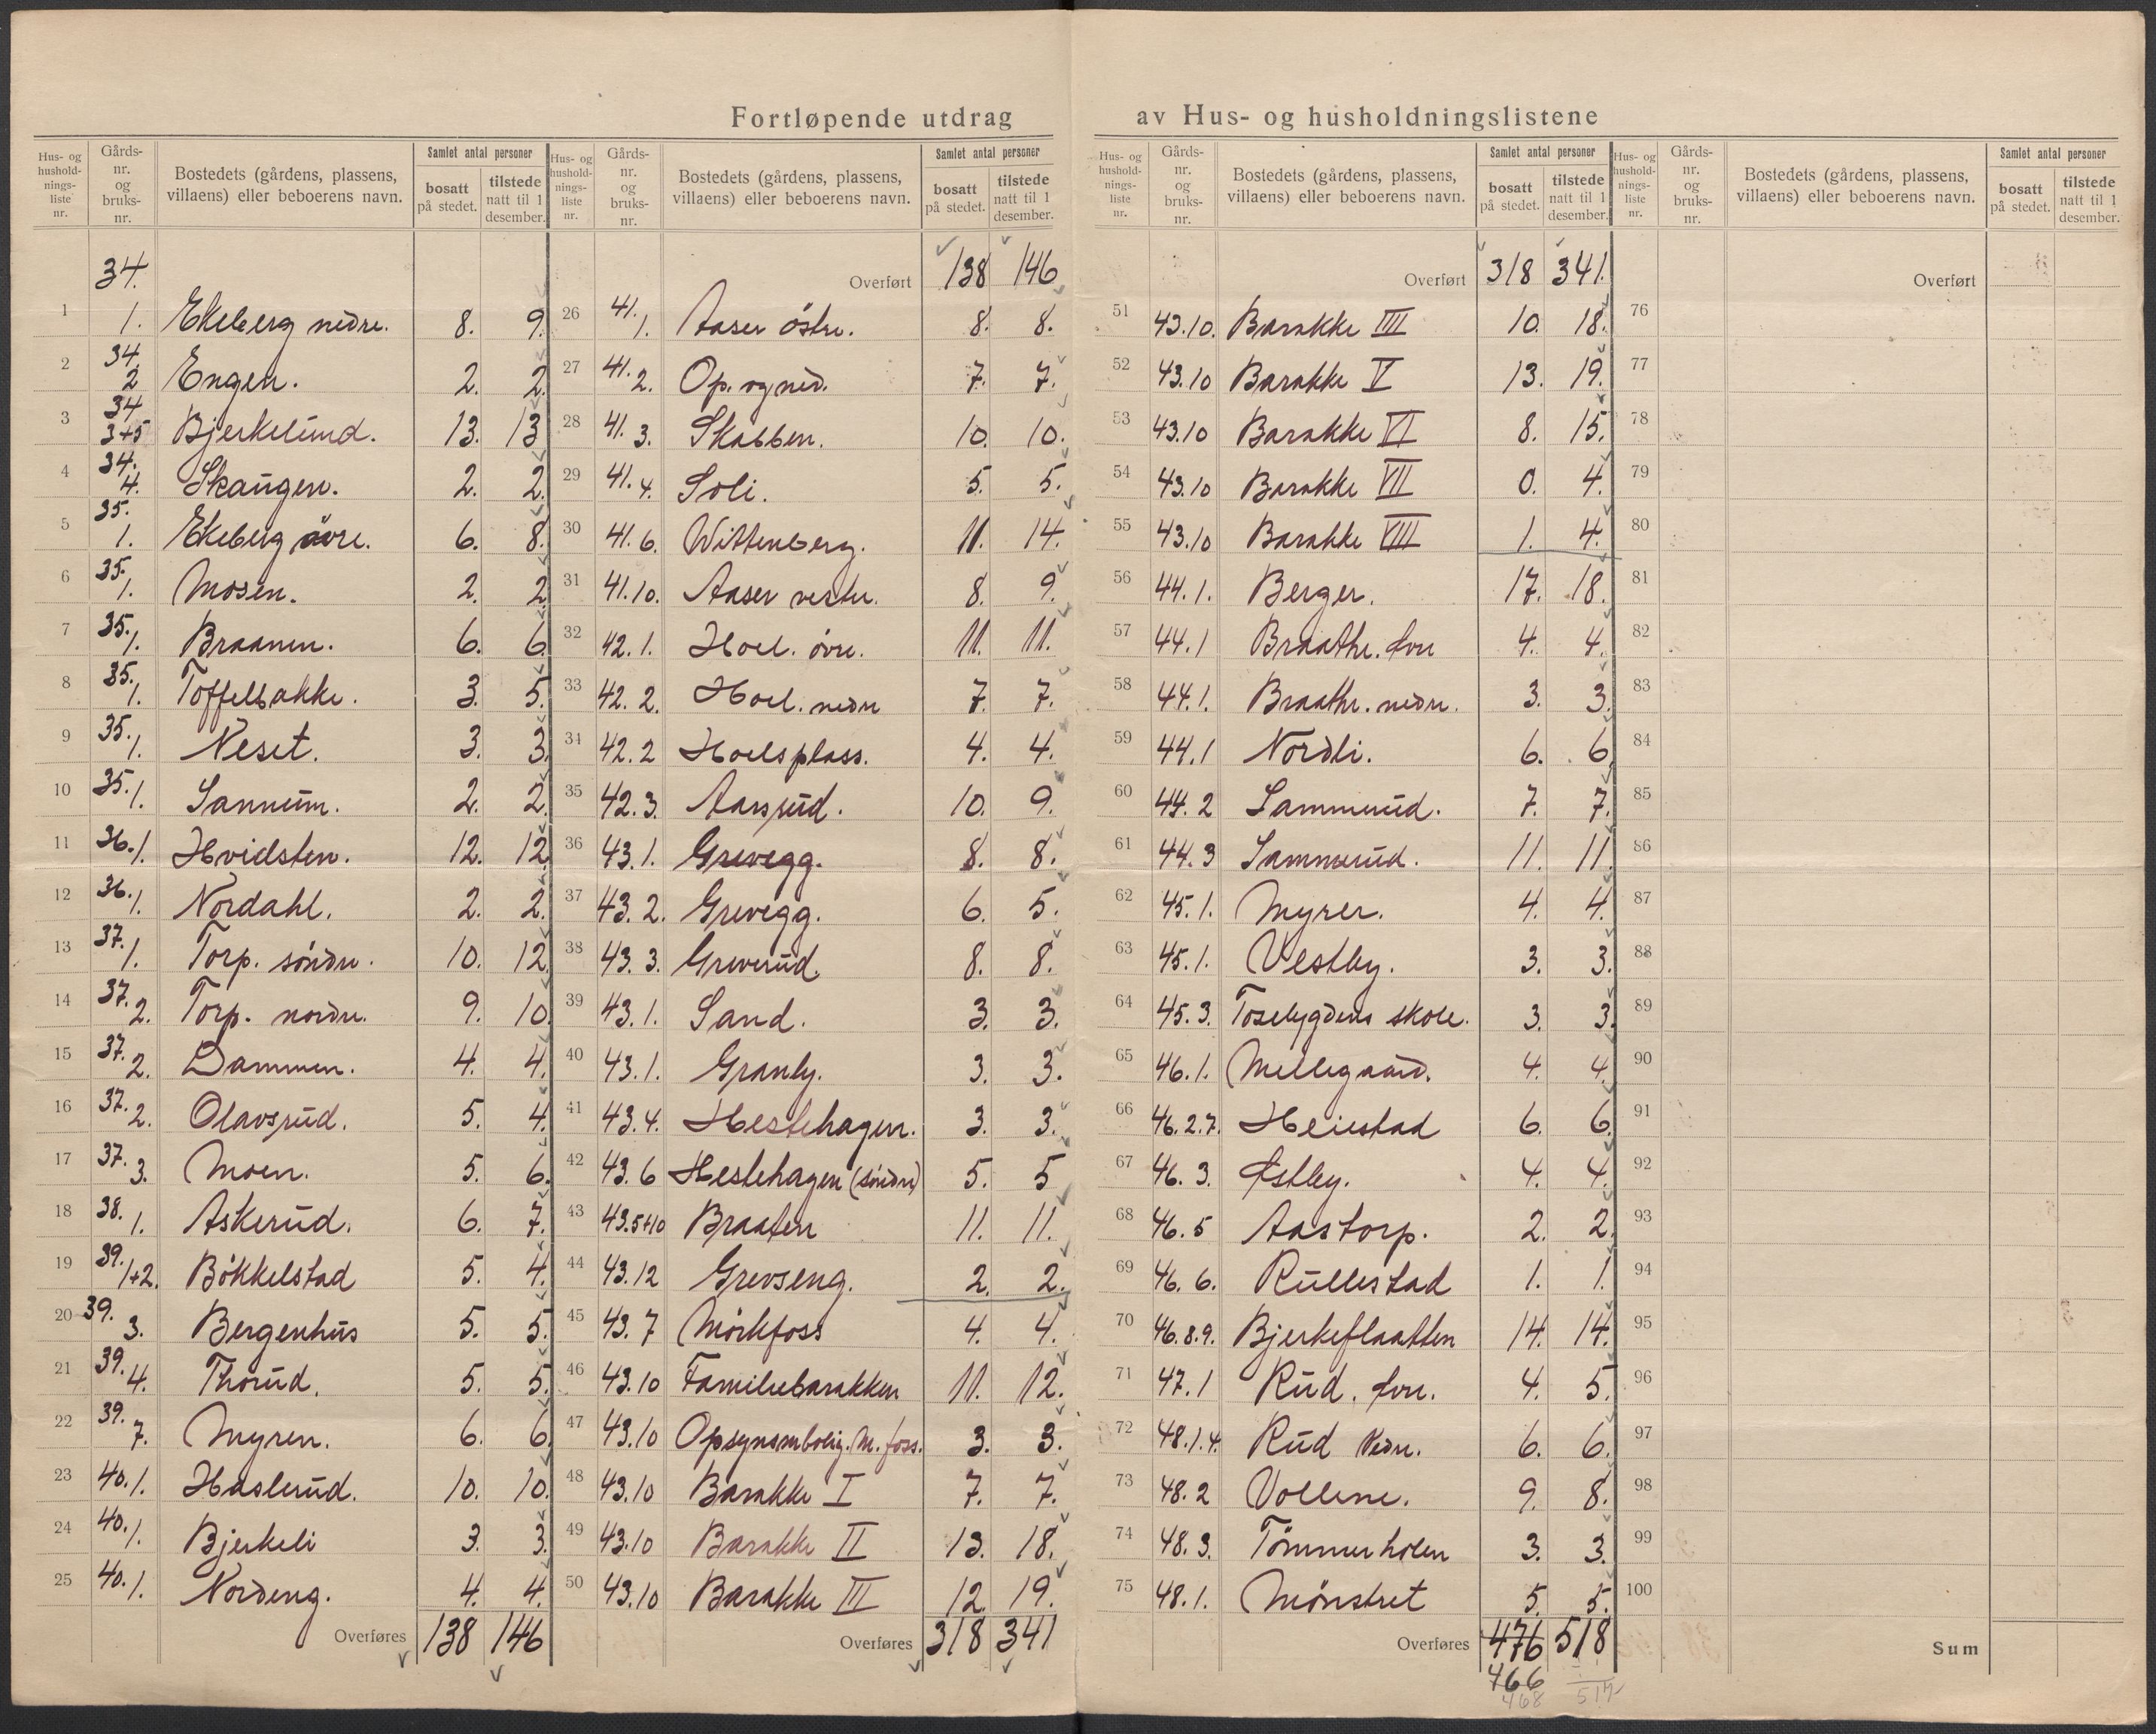 Fortløpende utdrag av Hus- og husholdningslistene
Hus- og hushold-nings-liste nr. Gårds-nr. og bruks-nr. Bostedets (gårdens, plassens, villaens) eller beboerens navn. Samlet antal personer bosatt på stedet. tilstede natt til 1 desember.
1 34. 1. Ekeberg nedre. 8. 9.
2 34. 2 Engen. 2. 2.
3 34 3+5 Bjerkelund. 13. 13
4 34. 4. Skaugen. 2. 2.
5 35. 1. Ekeberg øvre. 6. 8.
6 35. 1. Mosen. 2. 2
7 35. 1. Braanen. 6. 6
8 35. 1. Toffelbakke. 3. 5.
9 35. 1. Neset. 3. 3.
10 35. 1. Sannum. 2. 2
11 36. 1. Hvidsten. 12. 12
12 36. 1. Nordahl. 2. 2.
13 37. 1. Torp. söndre. 10. 12
14 37. 2. Torp. nordre. 9. 10
15 37. 2. Dammen. 4. 4.
16 37. 2. Olavsrud. 5. 4.
17 37. 3. Moen. 5. 6.
18 38. 1. Askerud. 6. 7.
19 39. 1+2. Bökkelstad 5. 4.
20 39. 3. Bergenhus 5. 5.
21 39. 4. Thorud. 5. 5.
22 39. 7. Myren. 6. 6
23 40. 1. Haslerud. 10. 10.
24 40. 1. Bjerkeli 3. 3.
25 40. 1. Nordeng. 4. 4.
Overføres 138 146
Hus- og hushold-nings-liste nr. Gårds-nr. og bruks-nr. Bostedets (gårdens, plassens, villaens) eller beboerens navn. Samlet antal personer bosatt på stedet. tilstede natt til 1 desember.
Overført 138 146
26 41. 1. Aaser östre. 8. 8.
27 41. 2. Op. og ned. 7. 7.
28 41. 3. Skabben. 10. 10.
29 41. 4. Soli. 5. 5.
30 41. 6. Wittenberg. 11. 14.
31 41. 10. Aaser vestre. 8. 9.
32 42. 1. Hoel. övre. 11. 11.
33 42. 2. Hoel. nedre 7. 7.
34 42. 2 Hoelsplass. 4. 4.
35 42. 3. Aasrud. 10. 9.
36 43. 1. Grevegg. 8. 8.
37 43. 2. Grevegg. 6. 5.
38 43. 3. Greverud. 8. 8.
39 43. 1. Sand. 3. 3.
40 43. 1. Granly. 3. 3.
41 43. 4. Hestehagen. 3. 3.
42 43. 6 Hestehagen (söndre) 5. 5
43 43. 5+10 Braaten 11. 11.
44 43. 12 Grevseng. 2. 2.
45 43. 7 Mörkfoss 4. 4.
46 43. 10 Familiebarakken 11. 12.
47 43. 10 Opsynsmbolig. M. foss. 3. 3.
48 43. 10 Barakke I 7. 7.
49 43. 10 Barakke II 13. 18.
50 43. 10 Barakke III 12. 19.
Overføres 318 341
Hus- og hushold-nings-liste nr. Gårds-nr. og bruks-nr. Bostedets (gårdens, plassens, villaens) eller beboerens navn. Samlet antal personer bosatt på stedet. tilstede natt til 1 desember.
Overført 318 341.
51 43. 10. Barakke IIII 10. 18.
52 43. 10 Barakke V 13. 19.
53 43. 10 Barakke VI 8. 15.
54 43. 10 Barakke VII 0. 4.
55 43. 10 Barakke VIIII 1. 4.
56 44. 1. Berger. 17. 18.
57 44. 1 Braathe. øvre 4. 4.
58 44. 1. Braathe. nedre. 3. 3.
59 44. 1 Nordli. 6. 6
60 44. 2 Sammerud. 7. 7.
61 44. 3 Sammerud. 11. 11
62 45. 1. Myrer. 4. 4.
63 45. 1. Vestby. 3. 3.
64 45. 3. Tosebygdens skole. 3. 3
65 46. 1. Mellegaard. 4. 4.
66 46. 2. 7. Heiestad 6. 6
67 46. 3. Østby. 4. 4.
68 46. 5 Aastorp. 2. 2
69 46. 6. Rullestad 1. 1.
70 46. 8. 9. Bjerkeflaatten 14. 14.
71 47. 1 Rud. øvre. 4. 5.
72 48. 1. 4. Rud Nedre. 6. 6.
73 48. 2 Vollene. 9. 8.
74 48. 3. Tömmerholen 3. 3.
75 48. 1. Mönstret 5. 5.
Overføres 476 518
466
468 517
Hus- og hushold-nings-liste nr. Gårds-nr. og bruks-nr. Bostedets (gårdens, plassens, villaens) eller beboerens navn. Samlet antal personer bosatt på stedet. tilstede natt til 1 desember.
Overført
76
77
78
79
80
81
82
83
84
85
86
87
88
89
90
91
92
93
94
95
96
97
98
99
100
Sum